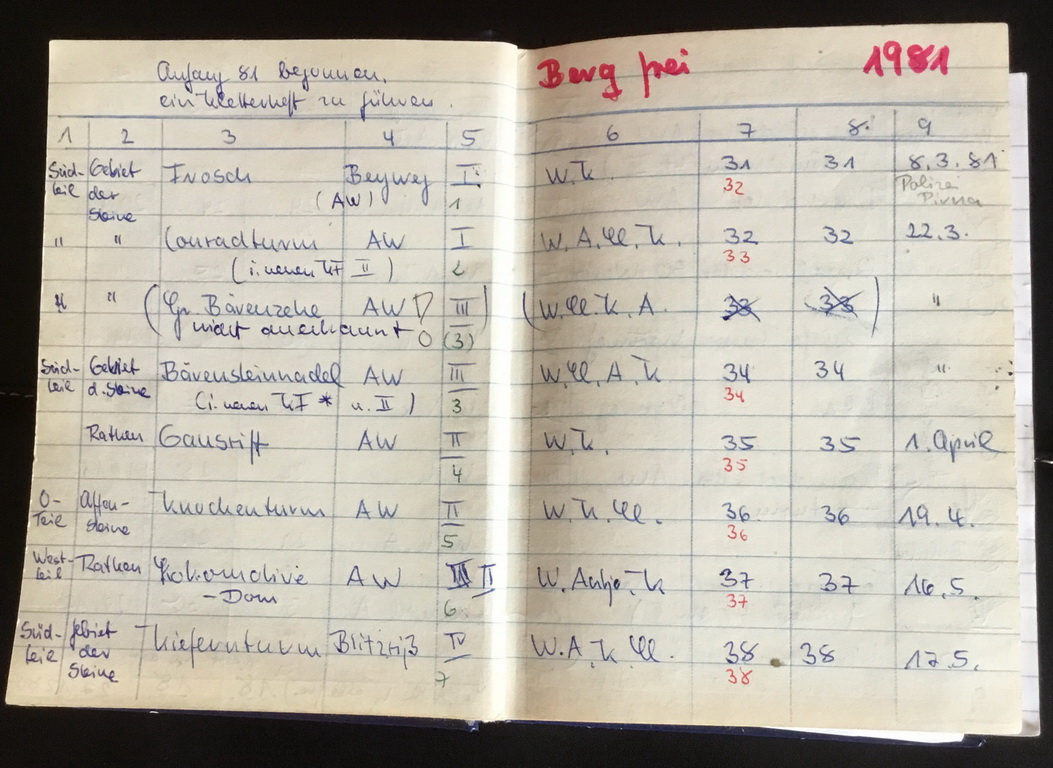 Anfang 81 begonnen,
ein Kletterheft zu führen.
Berg frei 1981
1 2 3 4 5 6 7 8. 9
Süd- Gebiet Frosch Beyweg I W. K. 31 31 8.3.81
teil der (AW) 1 32 Polizei
Steine Pirna
" " Conradturm AW I W. A. Ul. K. 32 32 22.3.
(i. neuen KF II) 2 33
" " (Gr. Bärenzehe AW ! III) (W. Ul. K. A. 33 33) "
nicht anerkannt (3)
Süd- Gebiet Bärensteinnadel AW III W. Ul. A. K 34 34 "
teil d. Steine (i. neuen KF * u. II) 3 34
Rathen Gansriff AW II W. K. 35 35 1. April
4 35
O- Affen- Knochenturm AW II W. K. Ul. 36 36 19.4.
Teil steine 5 36
West- Rathen Lokomotive AW III II W. Antje. K 37 37 16.5.
teil -Dom 6. 37
Süd- gebiet Kiefernturm Blitzriß IV W. A. K. Ul. 38 38 17.5.
teil der 7 38
Steine